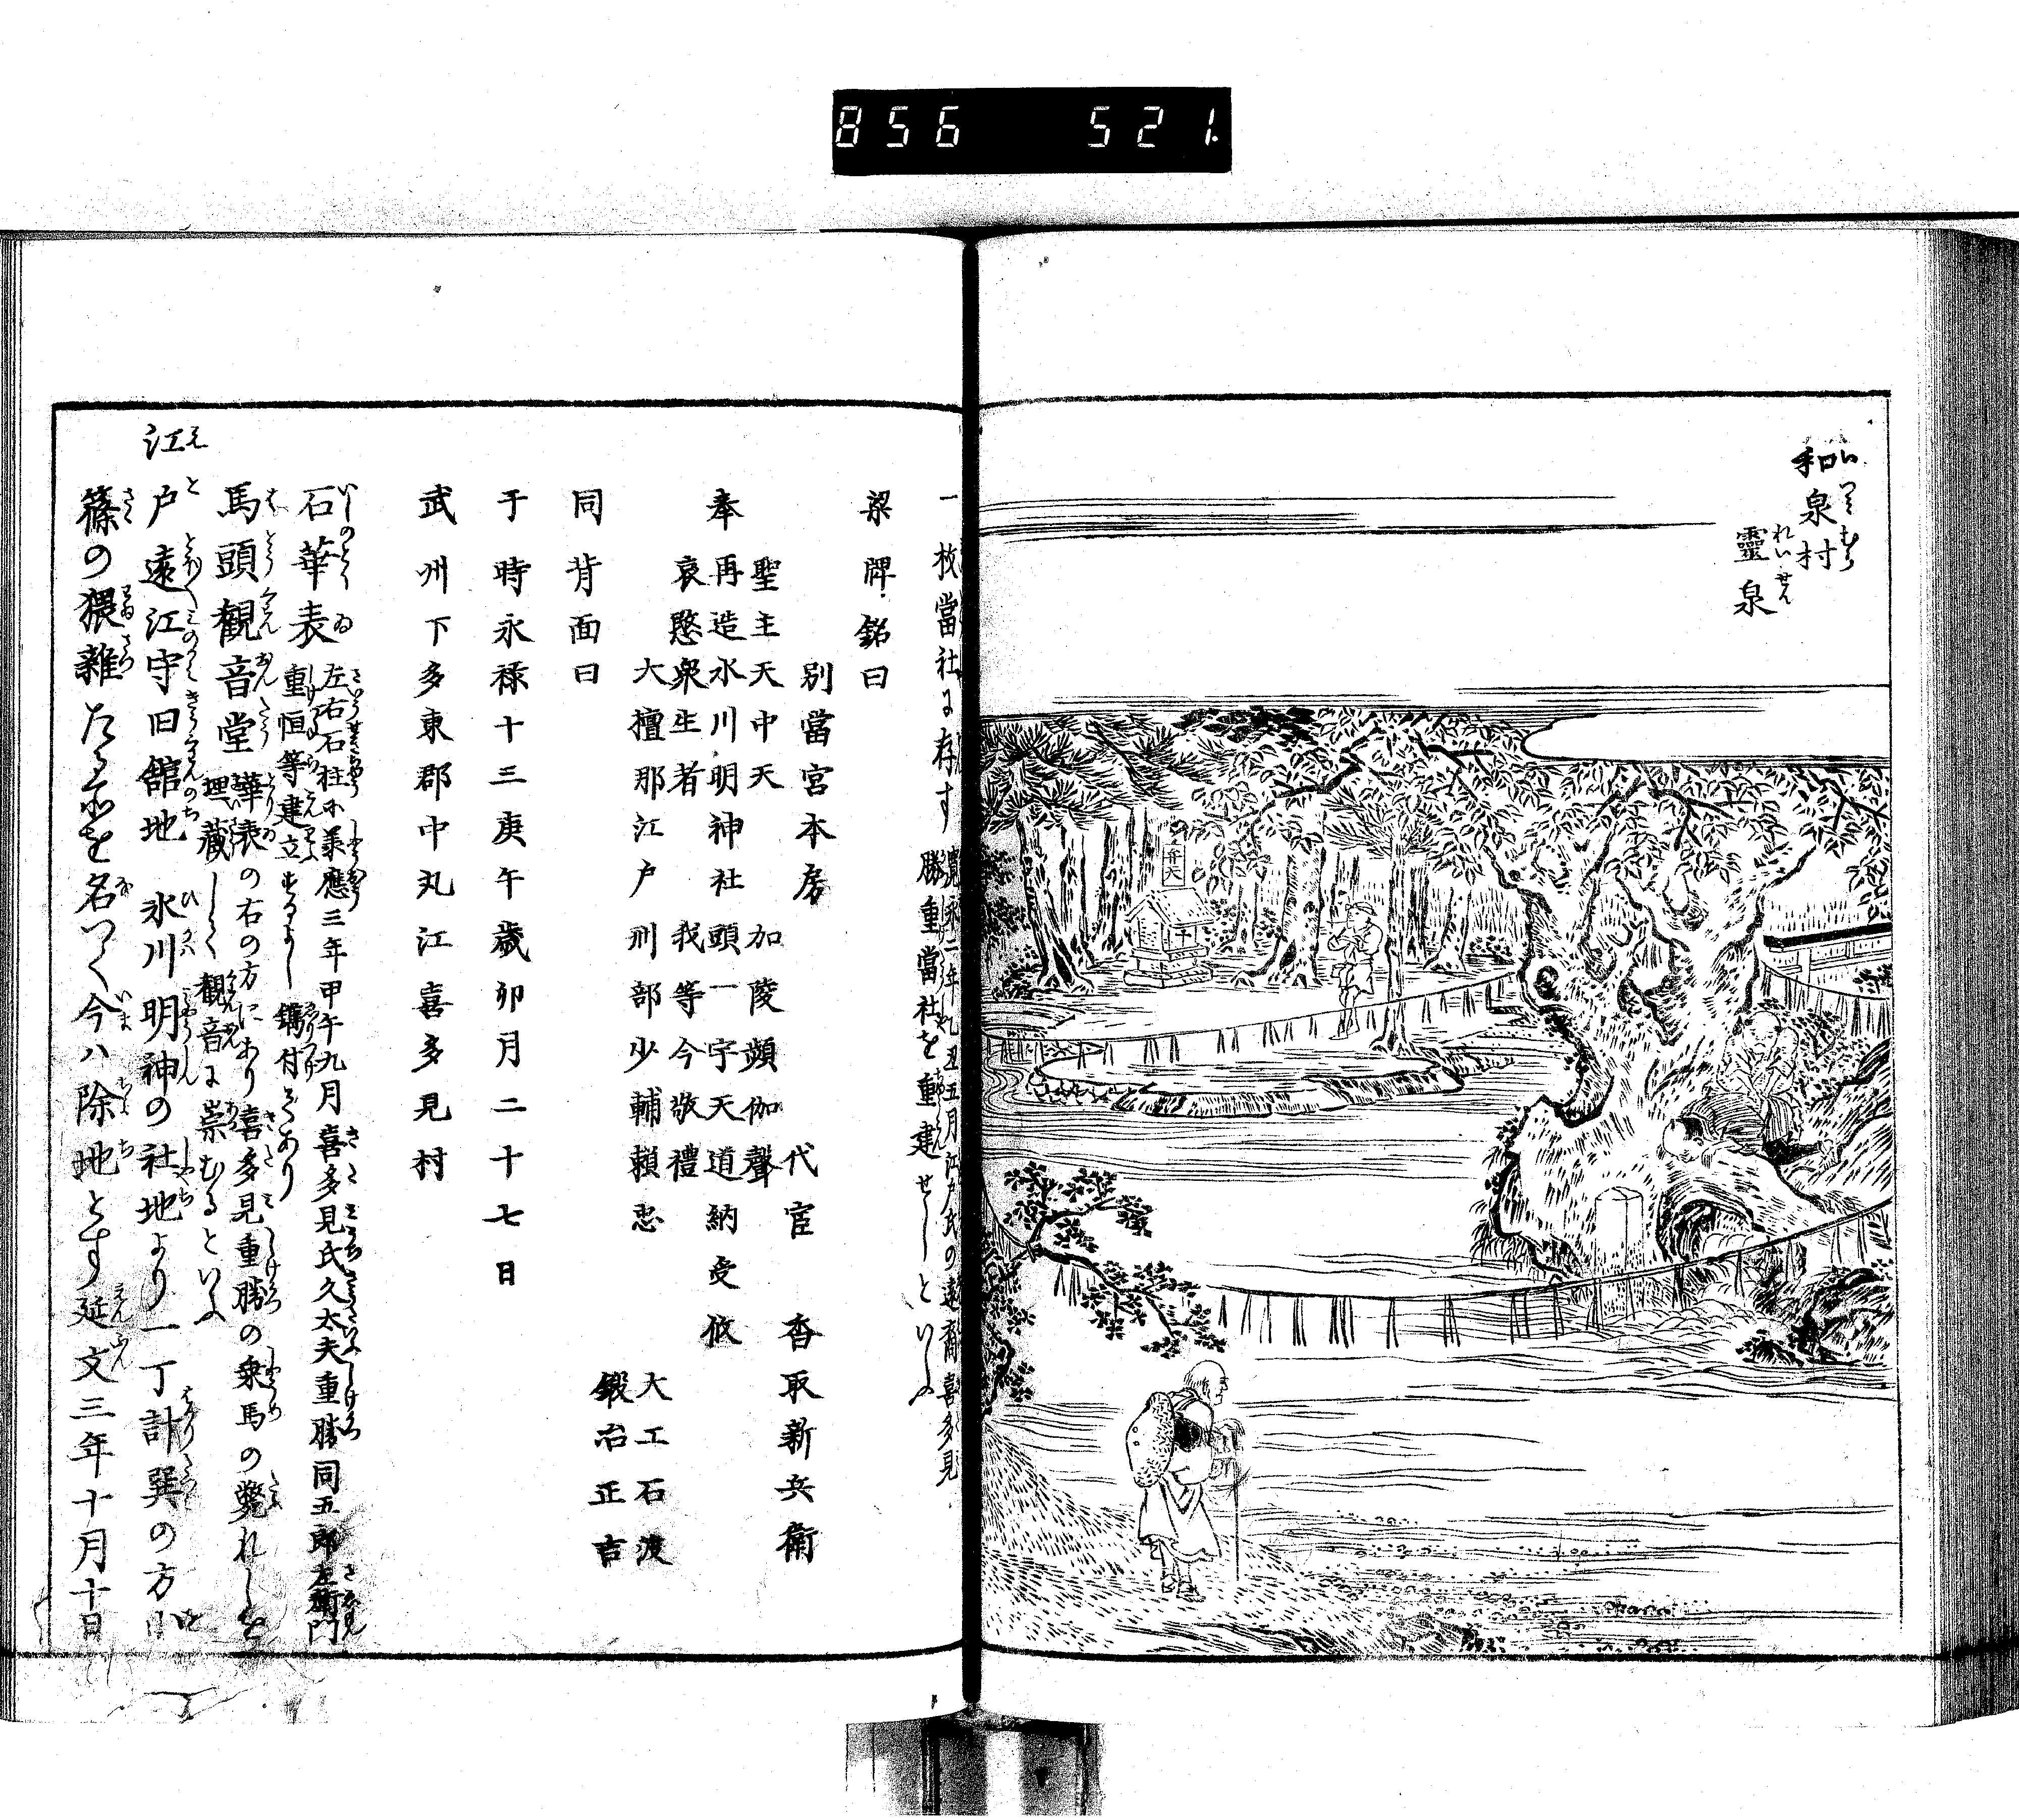 856 521
和泉村
いつミむら
靈泉
れいせん
弁天
一枚當社に存す
寛永二年乙丑五月江戸氏の遠裔喜多見
勝重當社を重建せしといふ
梁牌銘曰
別當宮本房 代官 香取新兵衛
聖主天中天 加陵頻伽聲
奉再造氷川明神社頭一宇天道納受攸
哀愍衆生者 我等今敬禮
大檀那江戸刑部少輔頼忠
大工石渡
鍛冶正吉
同背面曰
于時永禄十三庚午歳卯月二十七日
武州下多東郡中丸江喜多見村
石華表
左右石柱に承應三年甲午九月喜多見氏久太夫重勝同五郎左衛門
重恒等建立するよし鐫付てあり
馬頭観音堂
華表の右の方にあり喜多見重勝の乗馬の斃れしを
埋藏しこゝに観音に崇むるといふ
江戸遠江守旧舘地 氷川明神の社地より一丁計巽の方
篠の猥雜たる所を名つく今ハ除地とす延文三年十月十日